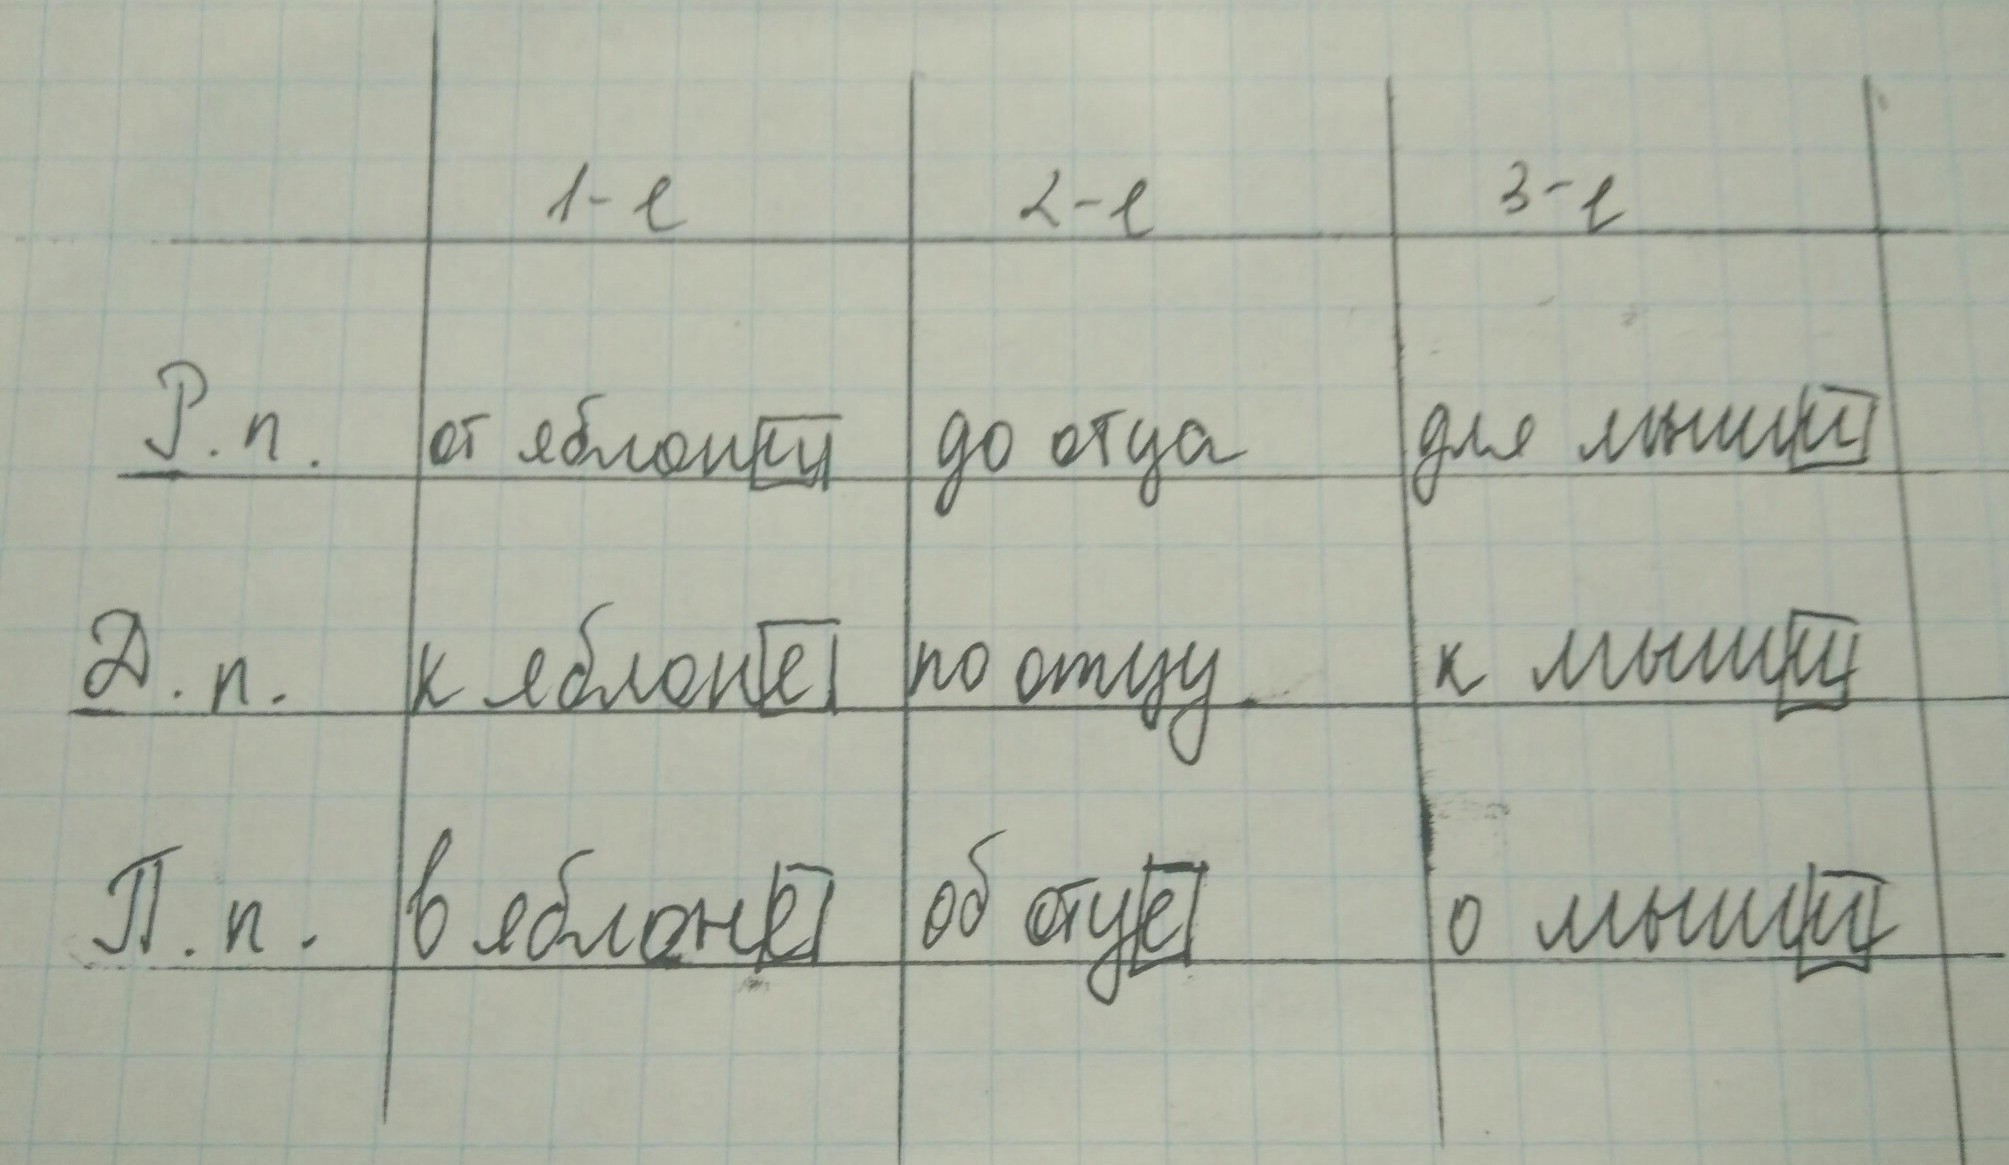 1-е 2-е 3-е
Р.п. от яблони до отца для мыши
Д.п. к яблоне по отцу к мыши
П.п. в яблоне об отце о мыши